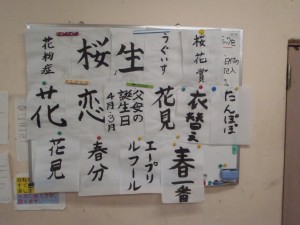 桜花賞
うぐいす
生
桜
花粉症
たんぽぽ
衣替え
花見
父母の
誕生日
4月・3月
恋
花
春一番
エープリ
ルフール
春分
花見